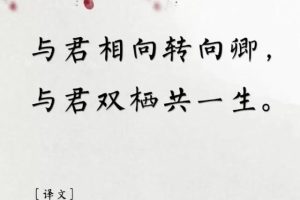 与君相向转向卿，
与君双栖共一生。
［译文］